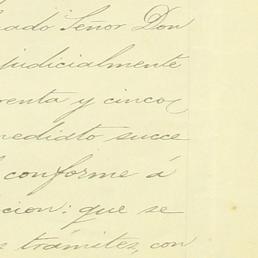 ado Señor Don
judicialmente
renta y cinco
mediato succe
conforme á
cion: que se
trámites, con